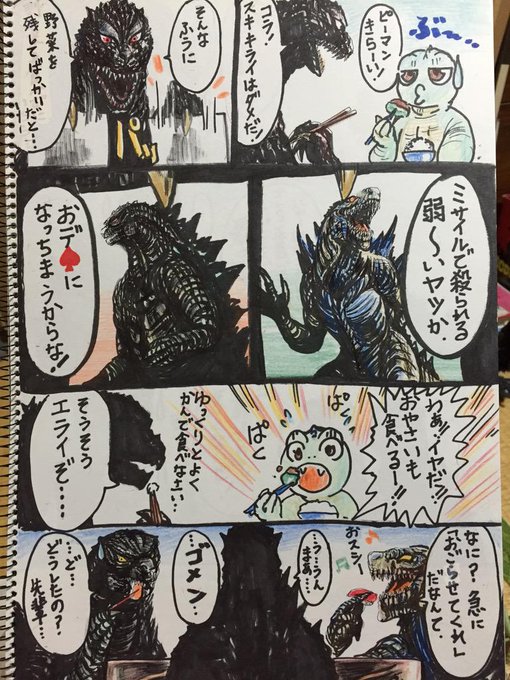 ぶ〜…
ピーマン
きらーい!
コラ!
スキキライはダメだ!
そんな
ふうに
野菜を
残してばっかいだと…
パッ
ミサイルで殺られる
弱〜いヤツか.
おデ♠に
なっちまうからな!!
わぁ!イヤだ!!
おやさいも
食べるー!!
ぱく
ぱく
ゆっくりとよく
かんで食べなさい…
そうそう
エライぞ…
なに?急に
「おごらせてくれ」
だなんて.
おぇシ!
…う…うん
まぁ…
…ゴメン…
…ど…
どうしたの?
先輩…